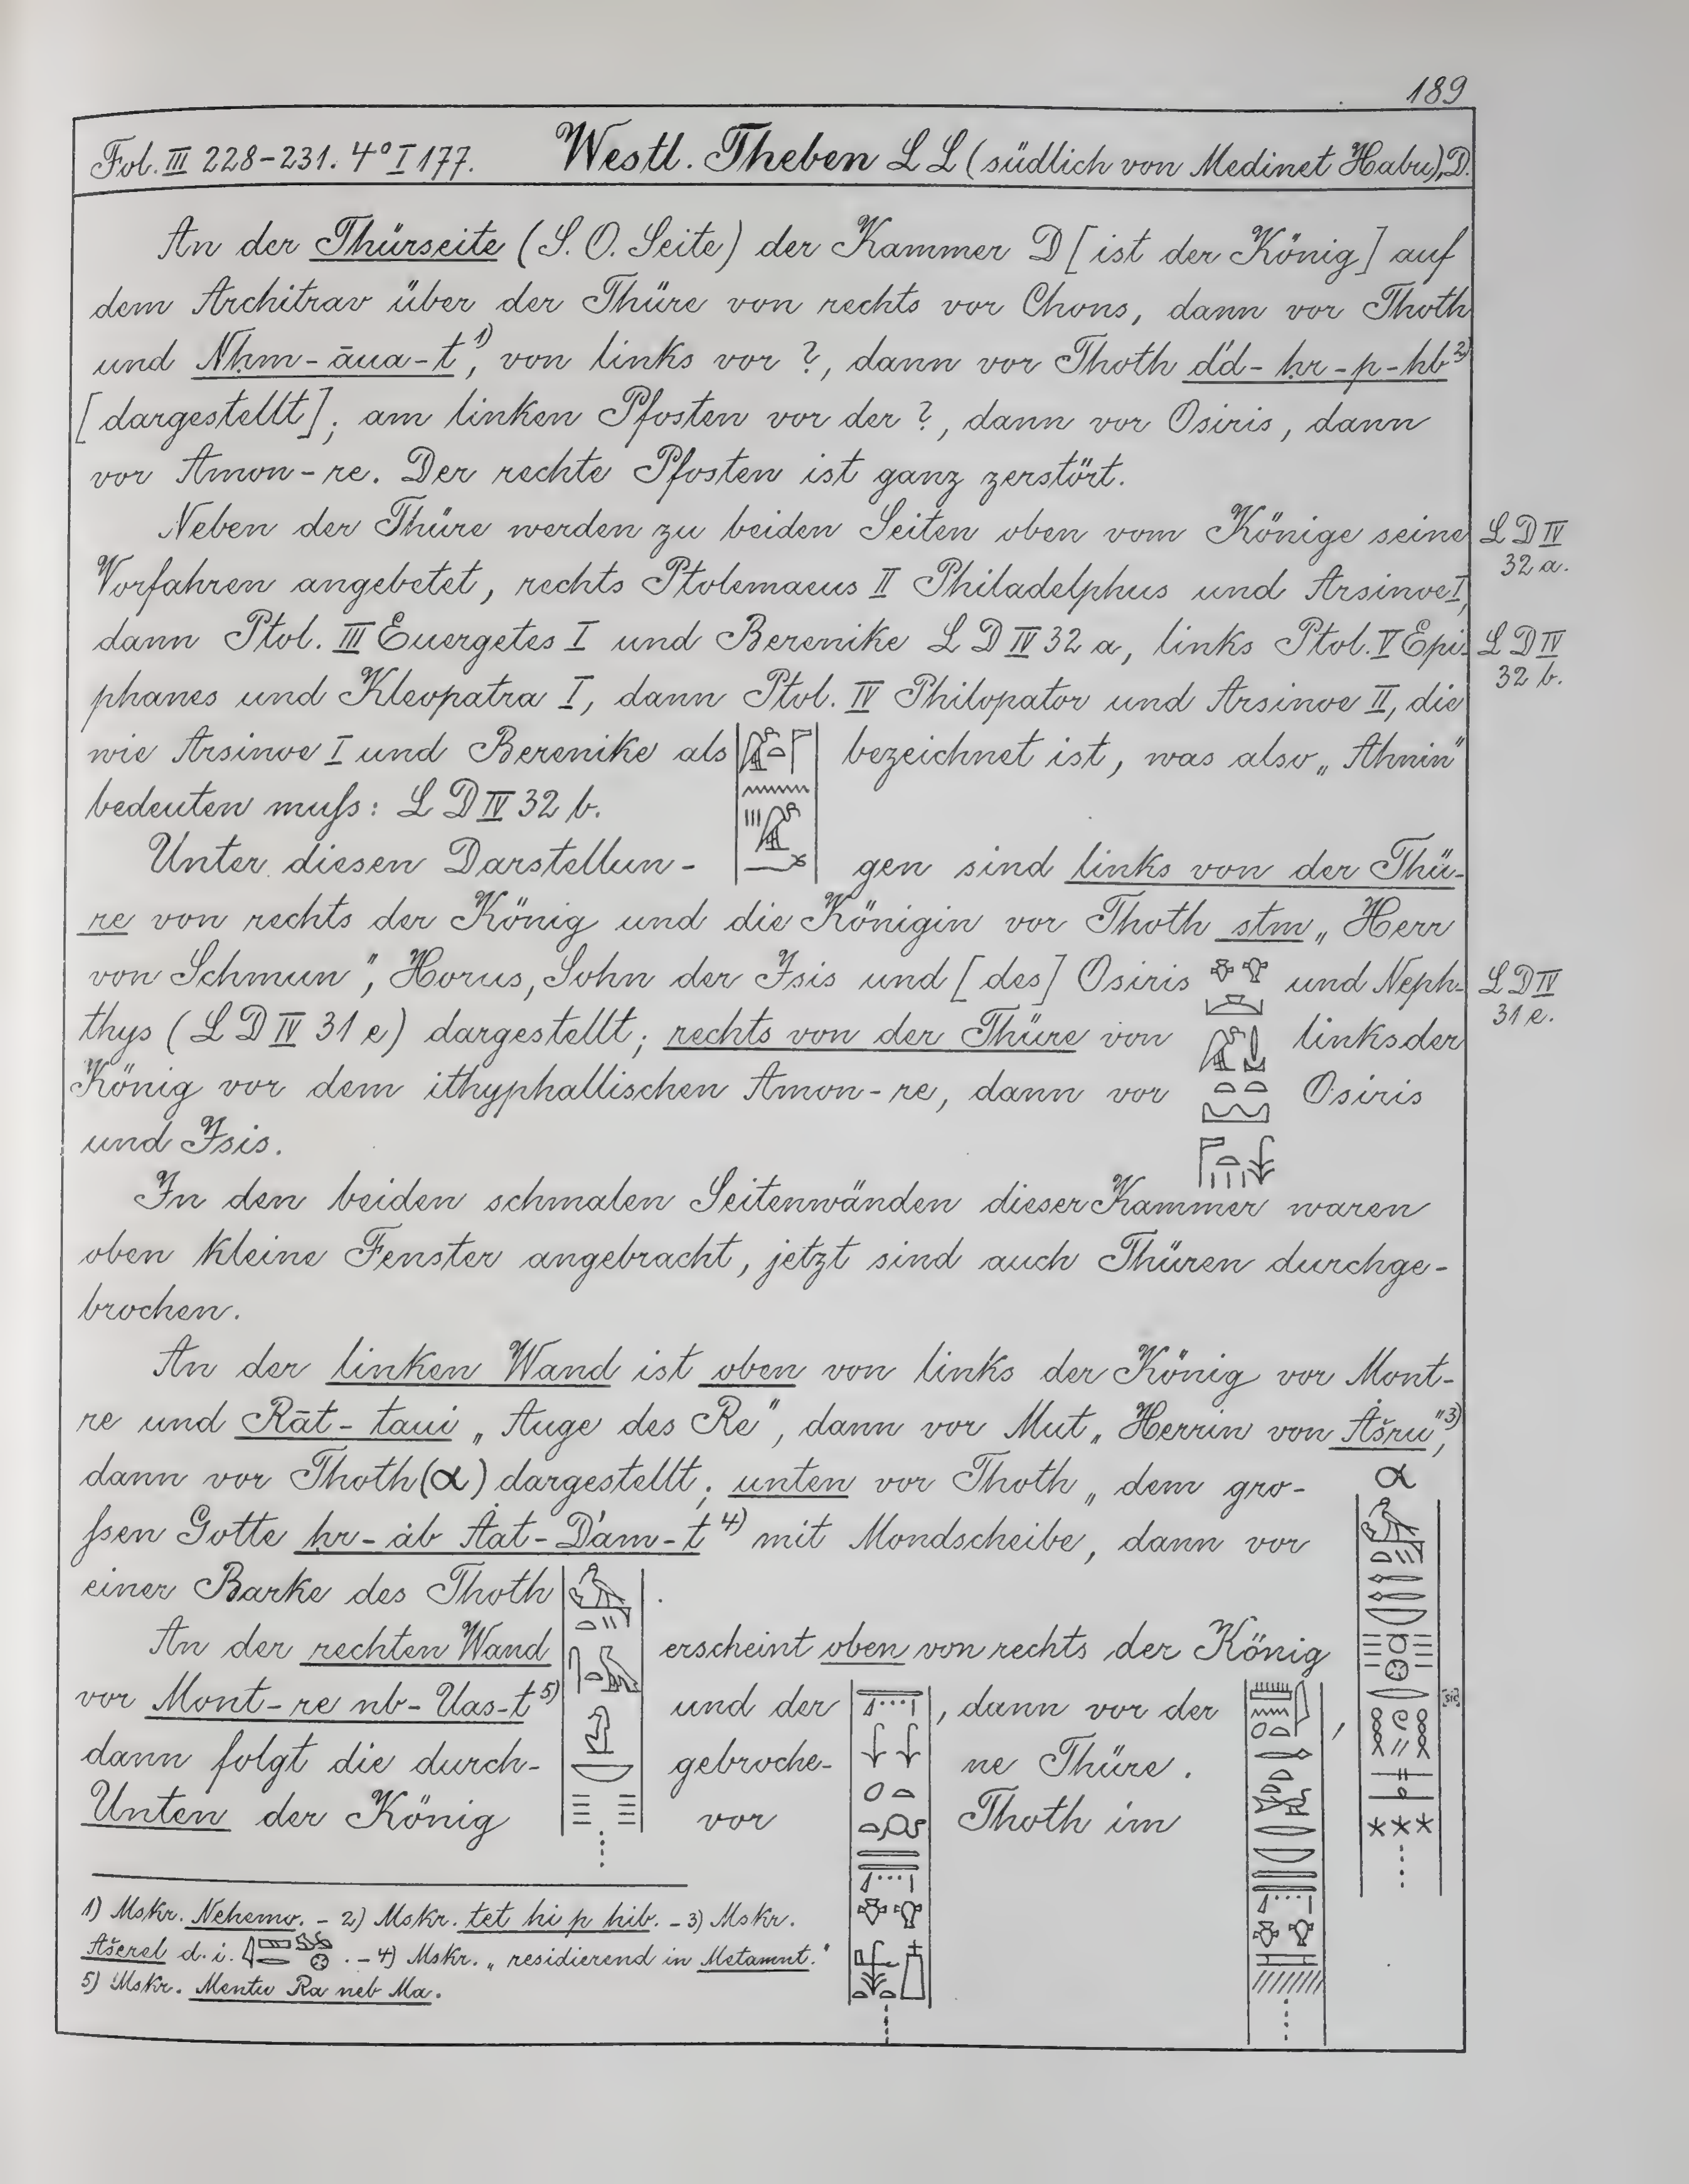 189
Fol. III 228-231. 4° I 177. Westl. Theben L L (südlich von Medinet Habu), D.
An der Thürseite (S. O. Seite) der Kammer D [ist der König] auf
dem Architrav über der Thüre von rechts vor Chons, dann vor Thoth
und Nḥm-āua-t¹⁾, von links vor ?, dann vor Thoth d'd-ḥr-p-hb²⁾
[dargestellt]; am linken Pfosten vor der ?, dann vor Osiris, dann
vor Amon-re. Der rechte Pfosten ist ganz zerstört.
Neben der Thüre werden zu beiden Seiten oben vom Könige seine L D IV
Vorfahren angebetet, rechts Ptolemaeus II Philadelphus und Arsinoe I, 32 a.
dann Ptol. III Euergetes I und Berenike L D IV 32 a, links Ptol. V Epi- L D IV
phanes und Kleopatra I, dann Ptol. IV Philopator und Arsinoe II, die 32 b.
wie Arsinoe I und Berenike als bezeichnet ist, was also „Ahnin"
bedeuten muſs: L D IV 32 b.
Unter diesen Darstellun- gen sind links von der Thü-
re von rechts der König und die Königin vor Thoth stm „Herr
von Schmun", Horus, Sohn der Isis und [des] Osiris und Neph- L D IV
thys (L D IV 31 e) dargestellt; rechts von der Thüre von links der 31 e.
König vor dem ithyphallischen Amon-re, dann vor Osiris
und Isis.
In den beiden schmalen Seitenwänden dieser Kammer waren
oben kleine Fenster angebracht, jetzt sind auch Thüren durchge-
brochen.
An der linken Wand ist oben von links der König vor Mont-
re und Rāt-taui „Auge des Re", dann vor Mut „Herrin von Ȧšru"³⁾,
dann vor Thoth (α) dargestellt; unten vor Thoth „dem gro- α
ſsen Gotte ḥr-ȧb Ȧat-D'am-t⁴⁾ mit Mondscheibe, dann vor
einer Barke des Thoth .
An der rechten Wand erscheint oben von rechts der König
vor Mont-re nb-Uas-t⁵⁾ und der , dann vor der , [sic]
dann folgt die durch- gebroche- ne Thüre.
Unten der König vor Thoth im
1) Mskr. Nehemo. - 2) Mskr. tet hi p hib. - 3) Mskr.
Ašerel d. i. . - 4) Mskr. „residierend in Metamnt."
5) Mskr. Mentu Ra neb Ma.